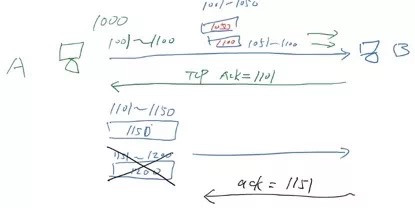 1000
1001~1050
1050
1001~1100
1100
1051~1100
A
B
TCP ACK=1101
1101~1150
1150
1151~1200
1200
ack = 1151